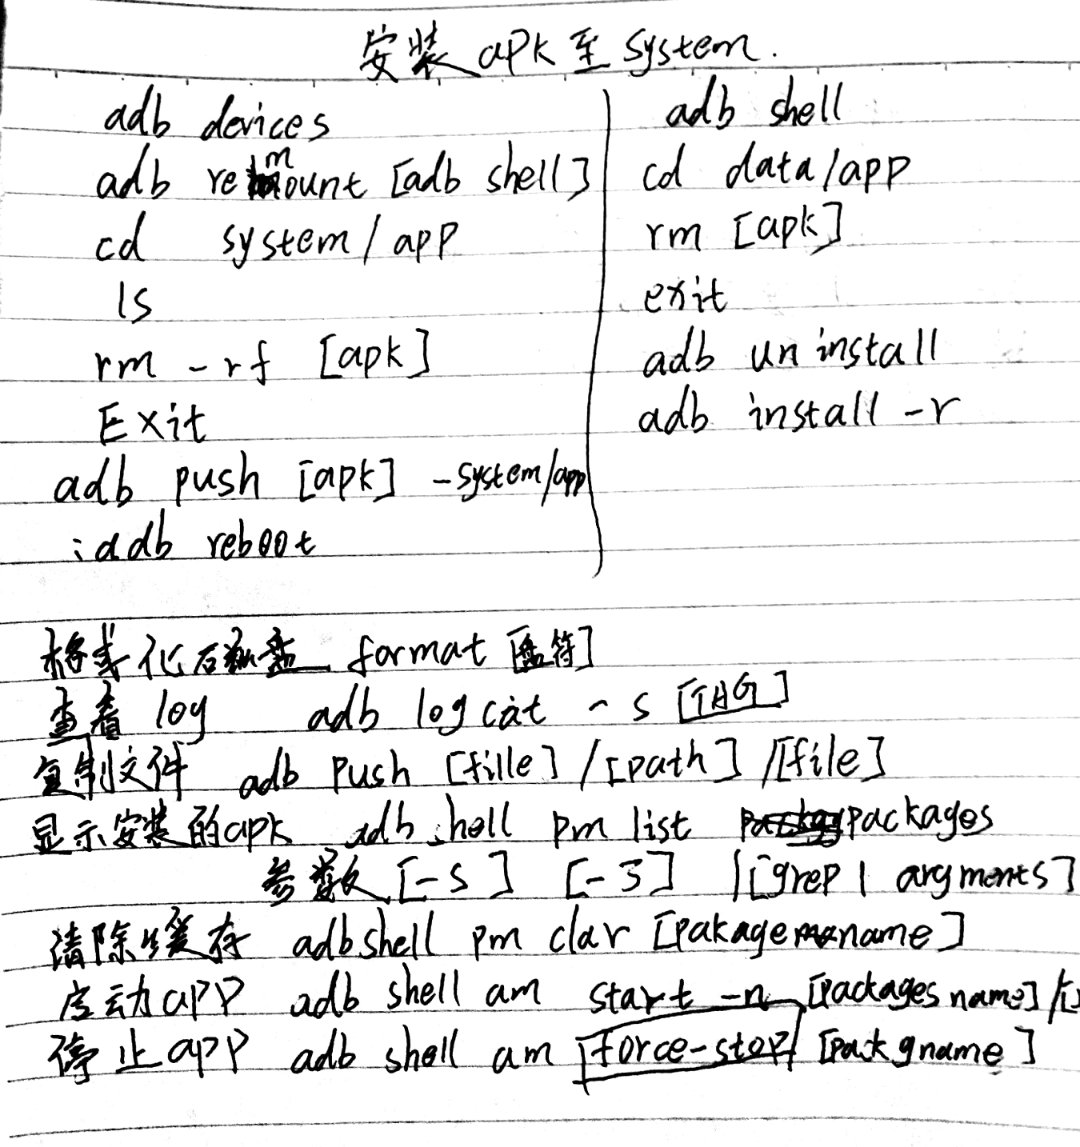 安装 apk 至 system.
adb devices
adb remount [adb shell]
cd system/app
ls
rm -rf [apk]
Exit
adb push [apk] -system/app
:adb reboot
adb shell
cd data/app
rm [apk]
exit
adb uninstall
adb install -r
格式化 format [盘符]
查看 log adb logcat -s [TAG]
复制文件 adb push [fille] /[path] /[file]
显示安装的apk adb shell pm list packages
参数 [-s] [-3] |[grep | argments]
清除缓存 adb shell pm clar [pakagename]
启动app adb shell am start -n [packages name]/[
停止app adb shell am [force-stop] [packgname]